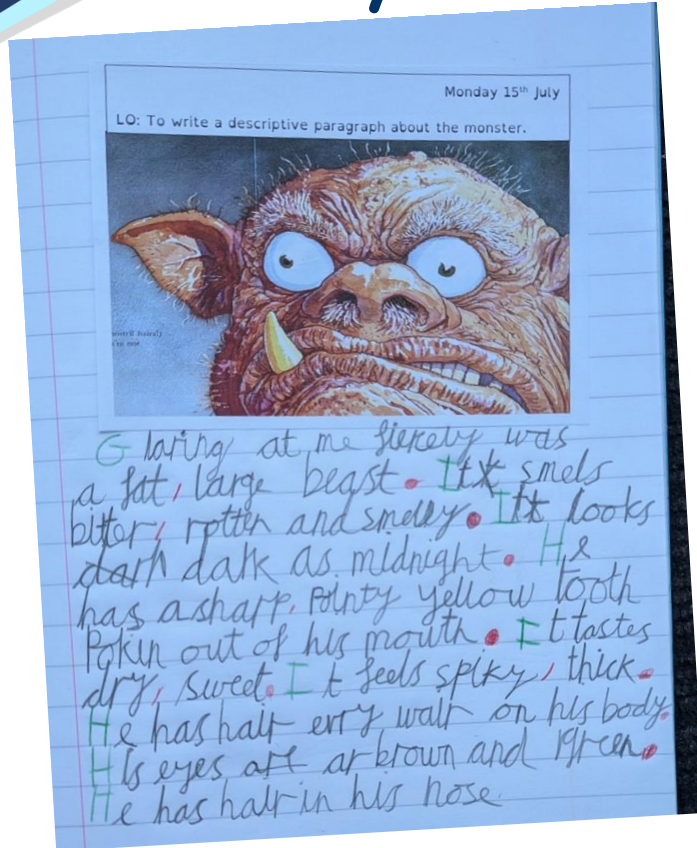 Monday 15th July
LO: To write a descriptive paragraph about the monster.
Glaring at me fierely was
a fat, large beast. It smels
bitter, rotten and smelly. It looks
dark as midnight. He
has a sharp, pointy yellow tooth
Pokin out of his mouth. It tastes
dry, sweet. It feels spiky, thick.
He has hair erry wair on his body.
His eyes are ar brown and green.
He has hair in his nose